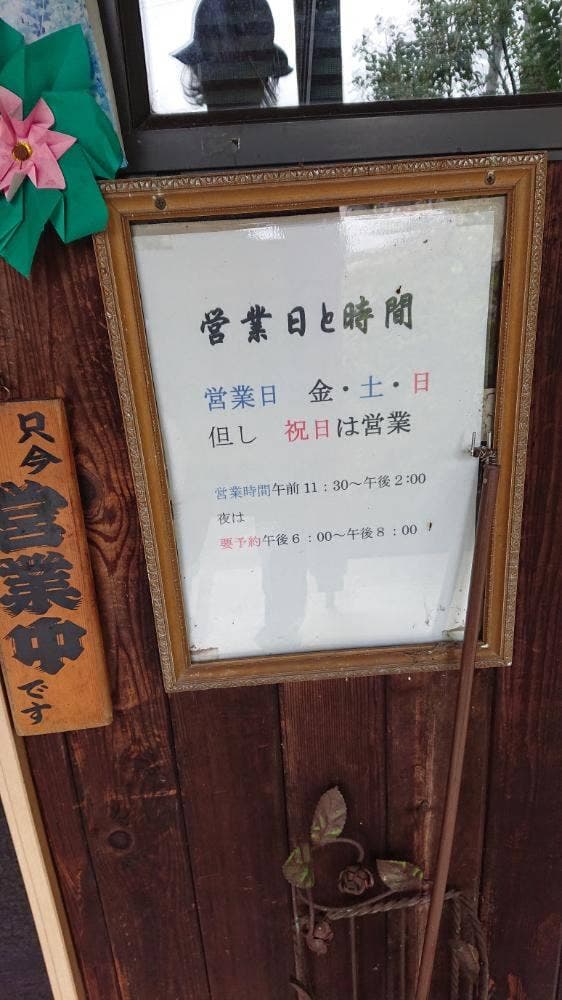 営業日と時間
営業日 金・土・日
但し 祝日は営業
営業時間午前11:30~午後2:00
夜は
要予約午後6:00~午後8:00
只今営業中です